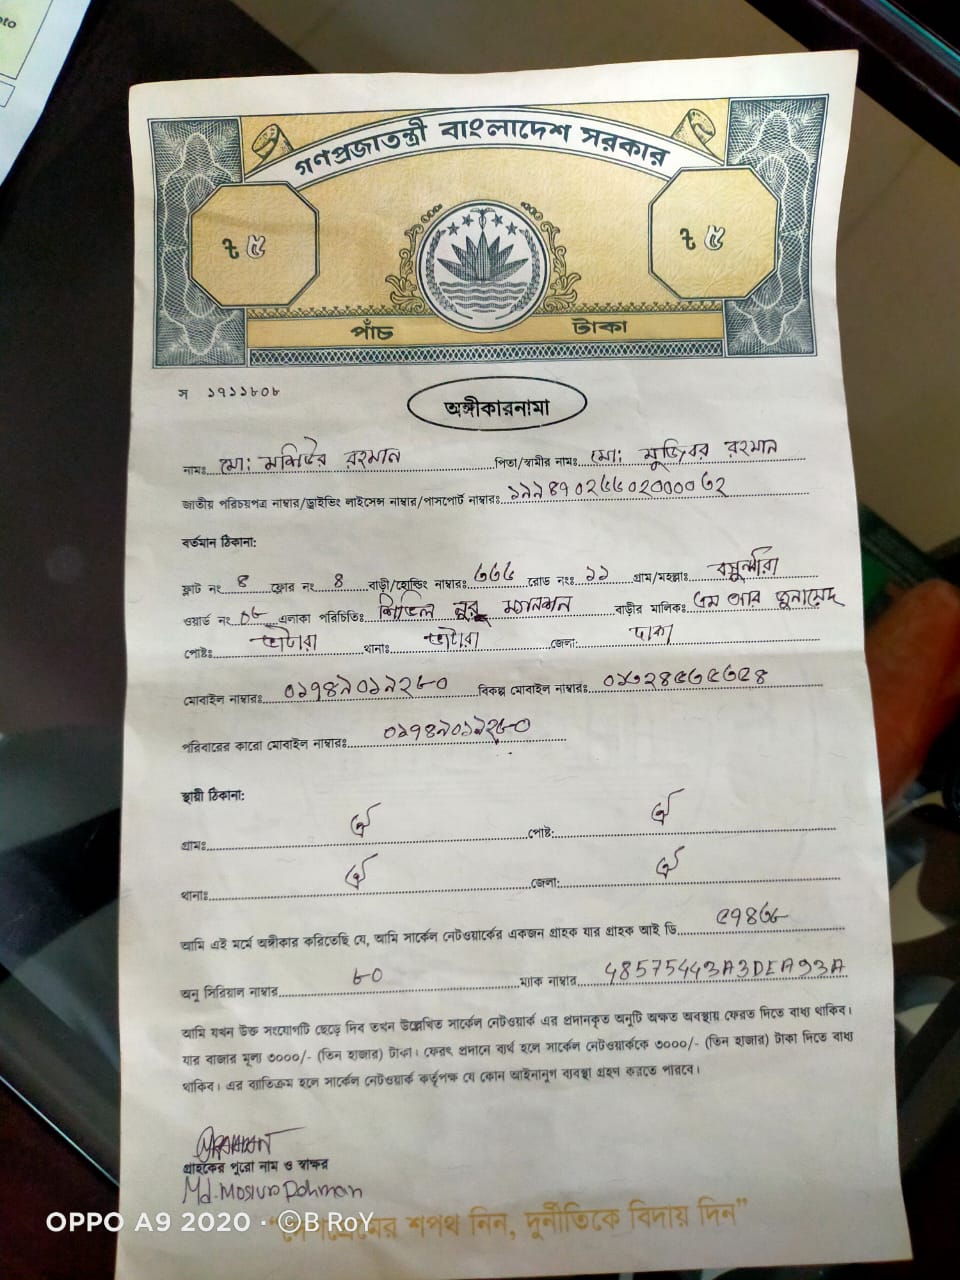 oto
গণপ্রজাতন্ত্রী বাংলাদেশ সরকার
৳ ৫ ৳ ৫
পাঁচ টাকা
স ১৭১১৮০৮
অঙ্গীকারনামা
নামঃ মো: মশিউর রহমান পিতা/স্বামীর নামঃ মো: মুজিবর রহমান
জাতীয় পরিচয়পত্র নাম্বার/ড্রাইভিং লাইসেন্স নাম্বার/পাসপোর্ট নাম্বারঃ
বর্তমান ঠিকানা:
ফ্লাট নং ৪ ফ্লোর নং ৪ বাড়ী/হোল্ডিং নাম্বারঃ রোড নংঃ ১১ গ্রাম/মহল্লাঃ বসুন্ধরা
ওয়ার্ড নং এলাকা পরিচিতিঃ নুর ম্যানশন বাড়ীর মালিকঃ এম আর জুনায়েদ
পোষ্টঃ ভাটারা থানাঃ ভাটারা জেলা: ঢাকা
মোবাইল নাম্বারঃ বিকল্প মোবাইল নাম্বারঃ
পরিবারের কারো মোবাইল নাম্বারঃ
স্থায়ী ঠিকানা:
গ্রামঃ ঐ পোষ্ট: ঐ
থানাঃ ঐ জেলা: ঐ
আমি এই মর্মে অঙ্গীকার করিতেছি যে, আমি সার্কেল নেটওয়ার্কের একজন গ্রাহক যার গ্রাহক আই ডি
অনু সিরিয়াল নাম্বার ৮০ ম্যাক নাম্বার 48575443A3DEA93A
আমি যখন উক্ত সংযোগটি ছেড়ে দিব তখন উল্লেখিত সার্কেল নেটওয়ার্ক এর প্রদানকৃত অনুটি অক্ষত অবস্থায় ফেরত দিতে বাধ্য থাকিব।
যার বাজার মূল্য ৩০০০/- (তিন হাজার) টাকা। ফেরৎ প্রদানে ব্যর্থ হলে সার্কেল নেটওয়ার্ককে ৩০০০/- (তিন হাজার) টাকা দিতে বাধ্য
থাকিব। এর ব্যতিক্রম হলে সার্কেল নেটওয়ার্ক কর্তৃপক্ষ যে কোন আইনানুগ ব্যবস্থা গ্রহণ করতে পারবে।
গ্রাহকের পুরো নাম ও স্বাক্ষর
Md. Mosiur Rahman
শপথ নিন, দুর্নীতিকে বিদায় দিন”
OPPO A9 2020 · ©B RoY